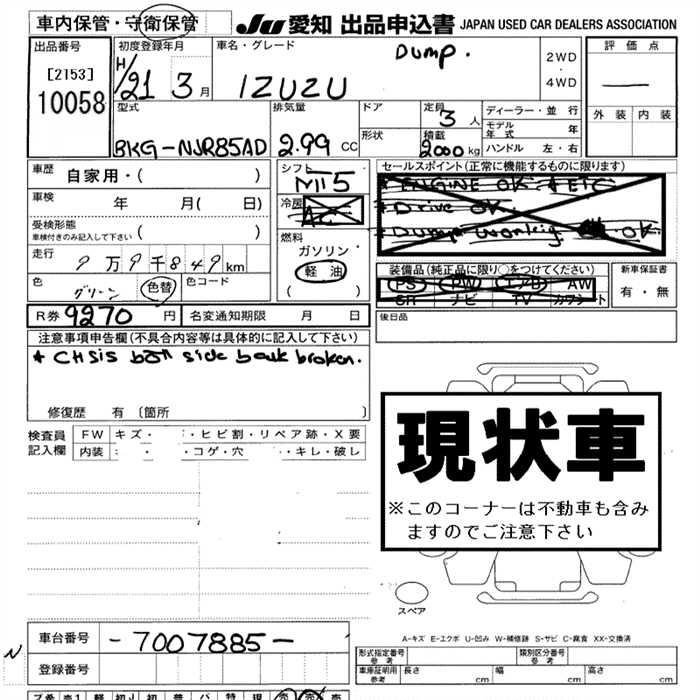 車内保管・守衛保管
JU 愛知 出品申込書 JAPAN USED CAR DEALERS ASSOCIATION
出品番号
[2153]
10058
初度登録年月
H/21 3月
車名・グレード
Dump.
IZUZU
2WD
・
4WD
評価点
—
外装 内装
型式
BKG-NJR85AD
排気量
2.99 CC
ドア
形状
定員
3 人
積載
2000 kg
ディーラー・並行
モデル年式 年
ハンドル 左・右
車歴
自家用・( )
車検
年 月( 日)
受検形態
車検付きのみ記入して下さい ( )
走行
9万9千849km
色
グリーン
色替
色コード
シフト
MT5
冷房
AC
燃料
ガソリン
軽油
( )
セールスポイント(正常に機能するものに限ります)
* ENGINE OK. * ETC
* Drive OK.
* Dump working OK.
装備品(純正品に限り○をつけてください)
PS PW エアB AW
SR ナビ TV カワシート
新車保証書
有・無
R券 9270 円
名変通知期限 月 日
後日品
注意事項申告欄(不具合内容等は具体的に記入して下さい)
* CHSIS both side back broken.
修復歴 有 〔箇所 〕
検査員
記入欄
FW キズ・ ・ヒビ割・リペア跡・X要
内装 ・ ・コゲ・穴 ・・キレ・破レ
現状車
※このコーナーは不動車も含み
ますのでご注意下さい
スペア
A-キズ E-エクボ U-凹み W-補修跡 S-サビ C-腐食 XX-交換済
N
車台番号
-7007885-
登録番号
形式指定番号
参考
類別区分番号
参考
車庫証明用
参考
長さ cm 幅 cm 高さ cm